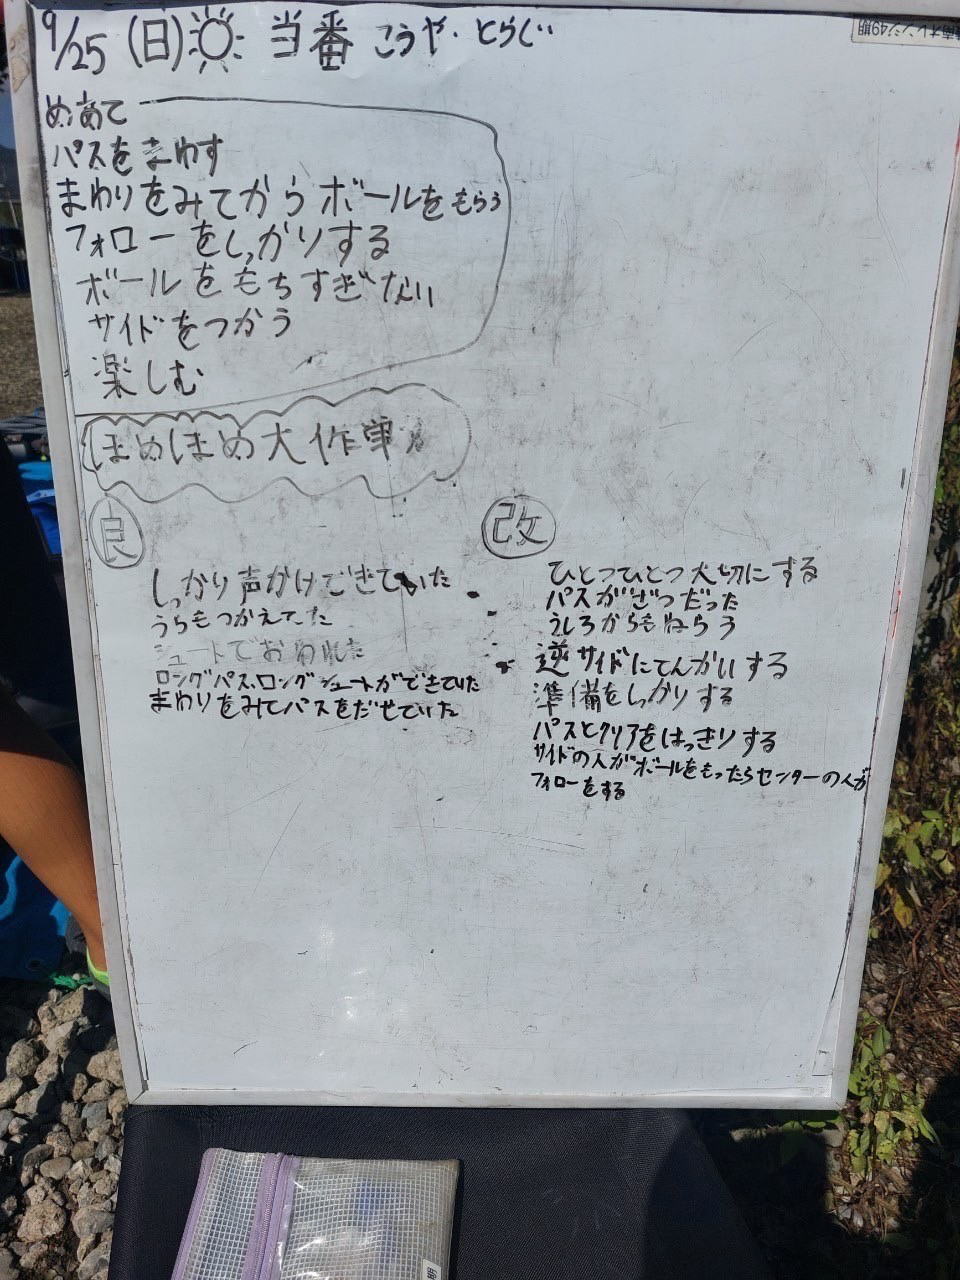 9/25 (日) 当番 こうや・とらじ
めあて
パスをまわす
まわりをみてからボールをもらう
フォローをしっかりする
ボールをもちすぎない
サイドをつかう
楽しむ
ほめほめ大作軍
良
しっかり声かけできていた
うらもつかえてた
シュートでおわれた
ロングパス、ロングシュートができていた
まわりをみてパスをだせていた
改
ひとつひとつ大切にする
パスがざつだった
うしろからもねらう
逆サイドにてんかいする
準備をしっかりする
パスとクリアをはっきりする
サイドの人がボールをもったらセンターの人が
フォローをする
オレンジ49期